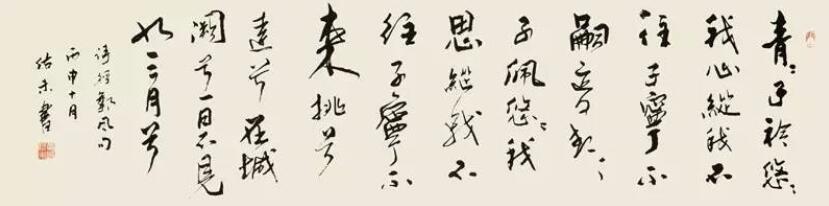 青〻子衿悠〻
我心縱我不
往子寧不
嗣音青〻
子佩悠〻我
思縱我不
往子寧不
來挑兮
達兮在城
闕兮一日不見
如三月兮
詩經鄭風句
丙申十月
書